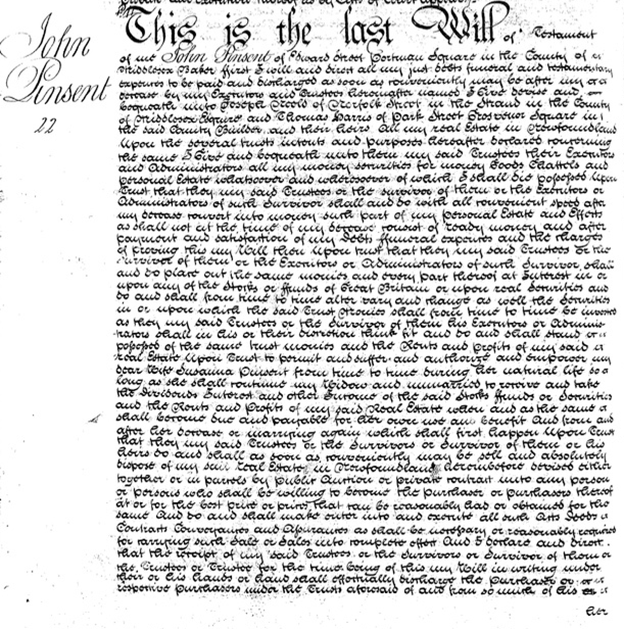 John
Pinsent
22
This is the last Will of Testament
of me John Pinsent of Edward Street Portman Square in the County of
Middlesex Baker ffirst I will and direct all my just debts funeral and testamentary
expences to be paid and discharged as soon as conveniently may be after my
decease by my Executors and Trustees hereinafter named I Give devise and
bequeath unto Joseph of Norfolk Street in the Strand in the County
of Middlesex Esquire and Thomas Harris of Park Street Grosvenor Square in
the said County Builder and their heirs All my real Estate in Newfoundland
Upon the several trusts intents and purposes hereafter declared concerning
the same I Give and bequeath unto them my said Trustees their Executors
and Administrators all my money securities for money Goods Chattels and
personal Estate whatsoever and wheresoever of which I shall die possessed Upon
Trust that they my said Trustees or the survivor of them or the Executors or
Administrators of such Survivor shall and do with all convenient speed after
my decease convert into money such part of my personal Estate and Effects
as shall not at the time of my decease consist of ready money and after
payment and satisfaction of my Debts ffuneral expences and the charges
of proving this my Will then Upon trust that they my said Trustees or the
survivor of them or the Executors or Administrators of such Survivor shall
and do place out the same monies and every part thereof at Interest in or
upon any of the Stocks or ffunds of Great Britain or upon real Securities and
do and shall from time to time alter vary and change as well the Securities
in or upon which the said Trust Monies shall from time to time be invested
as they my said Trustees or the Survivor of them his Executors or Adminis
trators shall in his or their discretion think fit and do and shall stand
possessed of the same trust monies and the Rents and Profits of my said
real Estate Upon Trust to permit and suffer and authorize and empower my
dear Wife Susanna Pinsent from time to time during her natural life so
long as she shall continue my Widow and unmarried to receive and take
the Dividends Interest and other Income of the said Stocks ffunds or Securities
and the Rents and Profits of my said Real Estate when and as the same
shall become due and payable for her own use and benefit And from and
after her decease or marrying again which shall first happen Upon Trust
that they my said Trustees or the Survivors or Survivor of them or his
heirs do and shall as soon as conveniently may be sell and absolutely
dispose of my said real Estate in Newfoundland hereinbefore devised either
together or in parcels by Public Auction or private contract unto any person
or persons who shall be willing to become the purchaser or purchasers thereof
at or for the best price or prices that can be reasonably had or obtained for the
same And do and shall make enter into and execute all such Acts Deeds
Contracts Conveyances and Assurances as shall be necessary or reasonably required
for carrying such Sale or Sales into complete effect And I declare and direct
that the receipt of my said Trustees or the Survivors or Survivor of them or
the Trustees or Trustee for the time being of this my Will in writing under
their or his hands or hand shall effectually discharge the purchaser or
respective purchasers under the Trusts aforesaid of and from so much of his
her